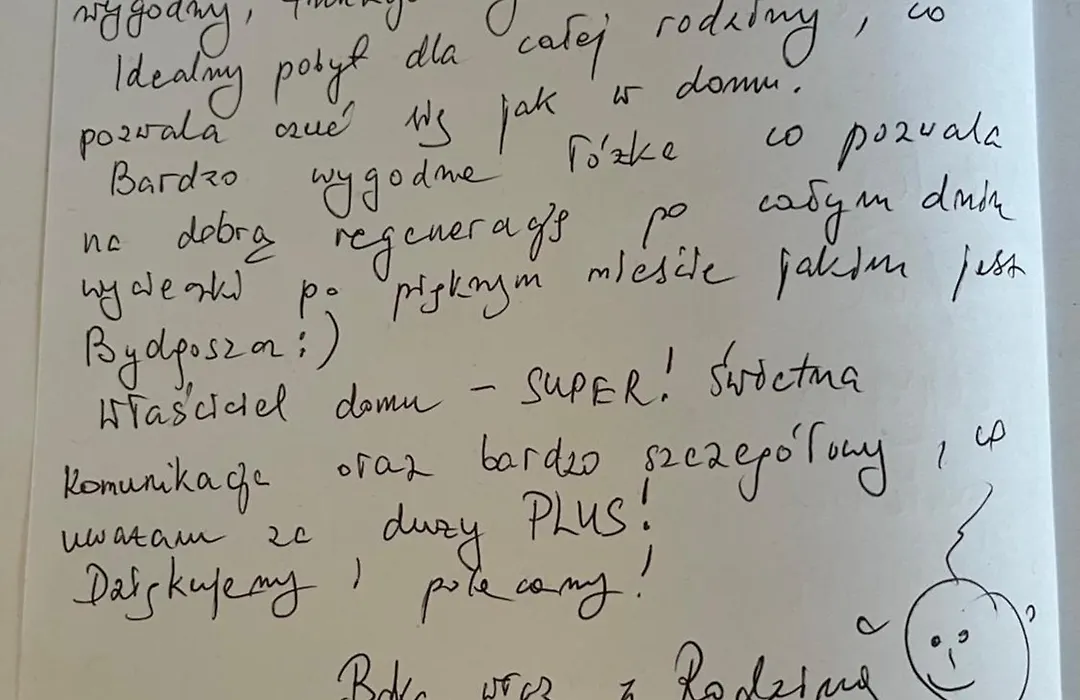 wygodny,
Idealny pobyt dla całej rodziny, co
pozwala czuć się jak w domu.
Bardzo wygodne łóżko co pozwala
na dobrą regenerację po całym dniu
wycieczki po pięknym mieście jakim jest
Bydgoszcz :)
Właściciel domu - SUPER! Świetna
komunikacja oraz bardzo szczegółowy, co
uważam za duży PLUS!
Dziękujemy i polecamy!
wraz z Rodziną